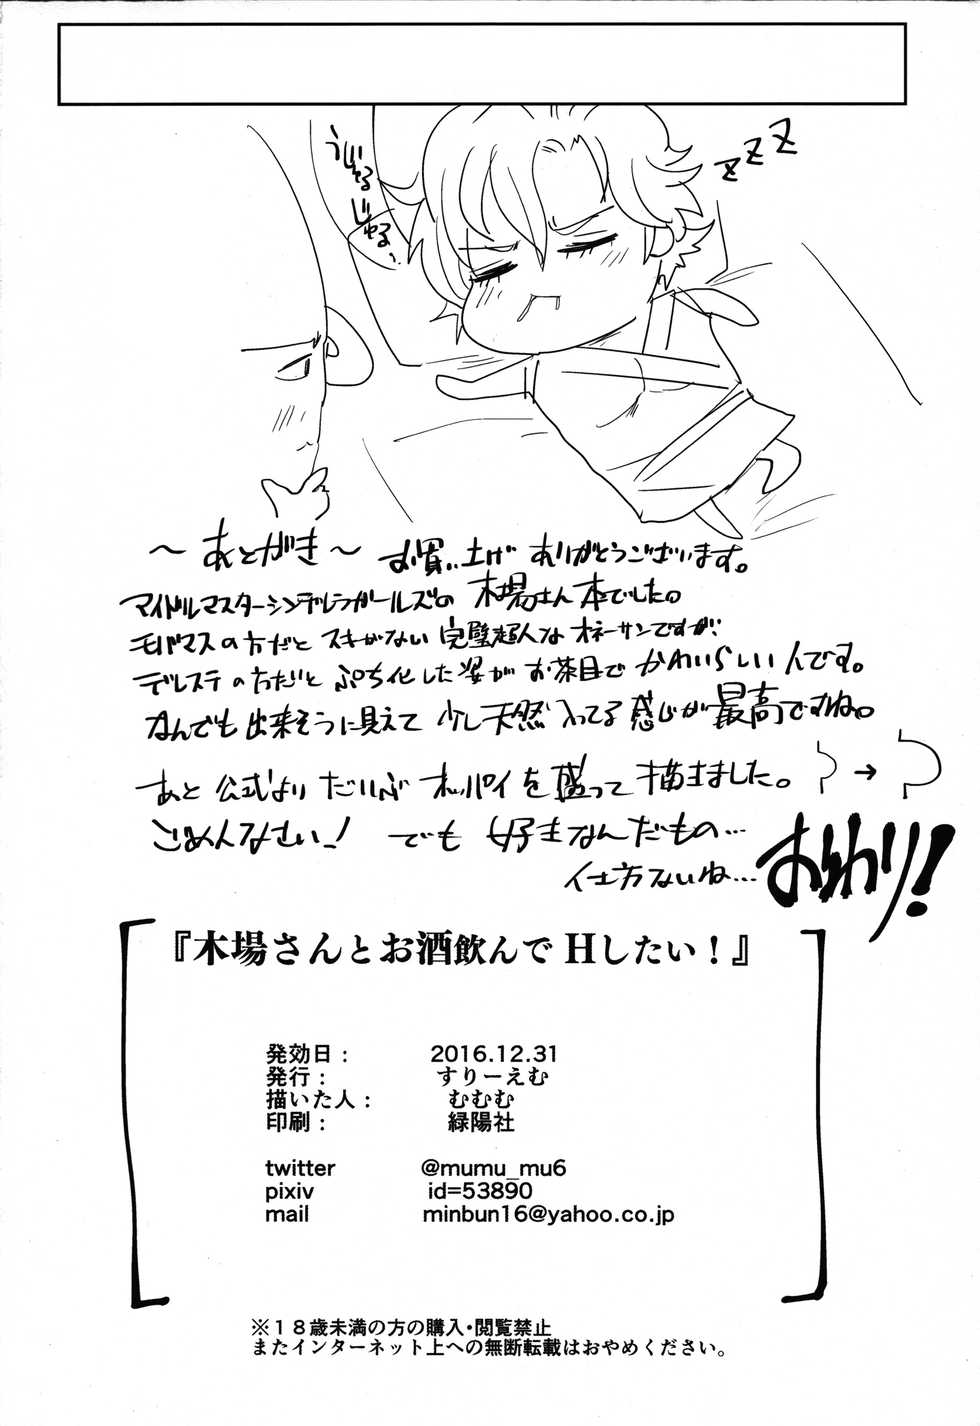 zzz
〜あとがき〜 お買い上げ ありがとうございます。
アイドルマスターシンデレラガールズの 木場さん本でした。
モバマスの方だと スキがない 完璧超人な オネーサンですが、
デレステの方だと ぷち化した姿が お茶目で かわいらしい人です。
なんでも出来そうに見えて 少し天然入ってる感じが最高ですね。
あと 公式より だいぶ オッパイを盛って描きました。 → 
ごめんなさい! でも 好きなんだもの…
仕方ないね…
おわり!
『木場さんとお酒飲んで Hしたい！』
発効日： 2016.12.31
発行： すりーえむ
描いた人： むむむ
印刷： 緑陽社
twitter @mumu_mu6
pixiv id=53890
mail minbun16@yahoo.co.jp
※１８歳未満の方の購入・閲覧禁止
またインターネット上への無断転載はおやめください。